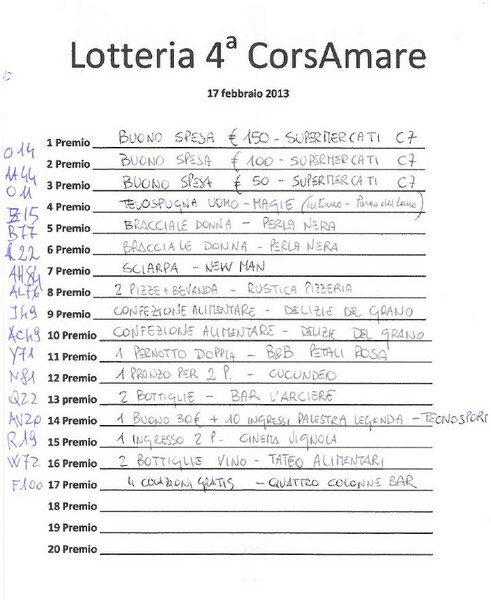 Lotteria 4ª CorsAmare
17 febbraio 2013
O14 1 Premio BUONO SPESA € 150 - SUPERMERCATI C7
AA44 2 Premio BUONO SPESA € 100 - SUPERMERCATI C7
O11 3 Premio BUONO SPESA € 50 - SUPERMERCATI C7
Z15 4 Premio TELOSPUGNA UOMO - MAGIE (intimo -
B77 5 Premio BRACCIALE DONNA - PERLA NERA
22 6 Premio BRACCIALE DONNA - PERLA NERA
AH84 7 Premio SCIARPA - NEW MAN
AL76 8 Premio 2 PIZZE + BEVANDA - RUSTICA PIZZERIA
J49 9 Premio CONFEZIONE ALIMENTARE - DELIZIE DEL GRANO
AC49 10 Premio CONFEZIONE ALIMENTARE - DELIZIE DEL GRANO
Y71 11 Premio 1 PERNOTTO DOPPIA - B&B PETALI ROSA
N81 12 Premio 1 PRANZO PER 2 P. - CUCUNDEO
Q22 13 premio 2 BOTTIGLIE - BAR L'ARCIERE
AV20 14 Premio 1 BUONO 30€ + 10 INGRESSI PALESTRA LEGENDA - TECNOSPORT
R19 15 Premio 1 INGRESSO 2 P. - CINEMA VIGNOLA
W72 16 Premio 2 BOTTIGLIE VINO - TATEO ALIMENTARI
F100 17 Premio 4 COLAZIONI GRATIS - QUATTRO COLONNE BAR
18 Premio
19 Premio
20 Premio